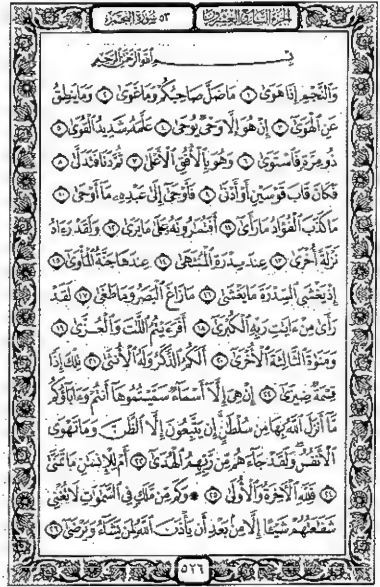 الجزء السابع والعشرون ٥٣ سورة النجم
بسم الله الرحمن الرحيم
وَالنَّجْمِ إِذَا هَوَىٰ ١ مَا ضَلَّ صَاحِبُكُمْ وَمَا غَوَىٰ ٢ وَمَا يَنطِقُ
عَنِ الْهَوَىٰ ٣ إِنْ هُوَ إِلَّا وَحْيٌ يُوحَىٰ ٤ عَلَّمَهُ شَدِيدُ الْقُوَىٰ ٥
ذُو مِرَّةٍ فَاسْتَوَىٰ ٦ وَهُوَ بِالْأُفُقِ الْأَعْلَىٰ ٧ ثُمَّ دَنَا فَتَدَلَّىٰ ٨
فَكَانَ قَابَ قَوْسَيْنِ أَوْ أَدْنَىٰ ٩ فَأَوْحَىٰ إِلَىٰ عَبْدِهِ مَا أَوْحَىٰ ١٠
مَا كَذَبَ الْفُؤَادُ مَا رَأَىٰ ١١ أَفَتُمَارُونَهُ عَلَىٰ مَا يَرَىٰ ١٢ وَلَقَدْ رَآهُ
نَزْلَةً أُخْرَىٰ ١٣ عِندَ سِدْرَةِ الْمُنتَهَىٰ ١٤ عِندَهَا جَنَّةُ الْمَأْوَىٰ ١٥
إِذْ يَغْشَى السِّدْرَةَ مَا يَغْشَىٰ ١٦ مَا زَاغَ الْبَصَرُ وَمَا طَغَىٰ ١٧ لَقَدْ
رَأَىٰ مِنْ آيَاتِ رَبِّهِ الْكُبْرَىٰ ١٨ أَفَرَأَيْتُمُ اللَّاتَ وَالْعُزَّىٰ ١٩
وَمَنَاةَ الثَّالِثَةَ الْأُخْرَىٰ ٢٠ أَلَكُمُ الذَّكَرُ وَلَهُ الْأُنثَىٰ ٢١ تِلْكَ إِذًا
قِسْمَةٌ ضِيزَىٰ ٢٢ إِنْ هِيَ إِلَّا أَسْمَاءٌ سَمَّيْتُمُوهَا أَنتُمْ وَآبَاؤُكُم
مَّا أَنزَلَ اللَّهُ بِهَا مِن سُلْطَانٍ إِن يَتَّبِعُونَ إِلَّا الظَّنَّ وَمَا تَهْوَى
الْأَنفُسُ وَلَقَدْ جَاءَهُم مِّن رَّبِّهِمُ الْهُدَىٰ ٢٣ أَمْ لِلْإِنسَانِ مَا تَمَنَّىٰ
٢٤ فَلِلَّهِ الْآخِرَةُ وَالْأُولَىٰ ٢٥ ۞ وَكَم مِّن مَّلَكٍ فِي السَّمَاوَاتِ لَا تُغْنِي
شَفَاعَتُهُمْ شَيْئًا إِلَّا مِن بَعْدِ أَن يَأْذَنَ اللَّهُ لِمَن يَشَاءُ وَيَرْضَىٰ ٢٦
٥٢٦